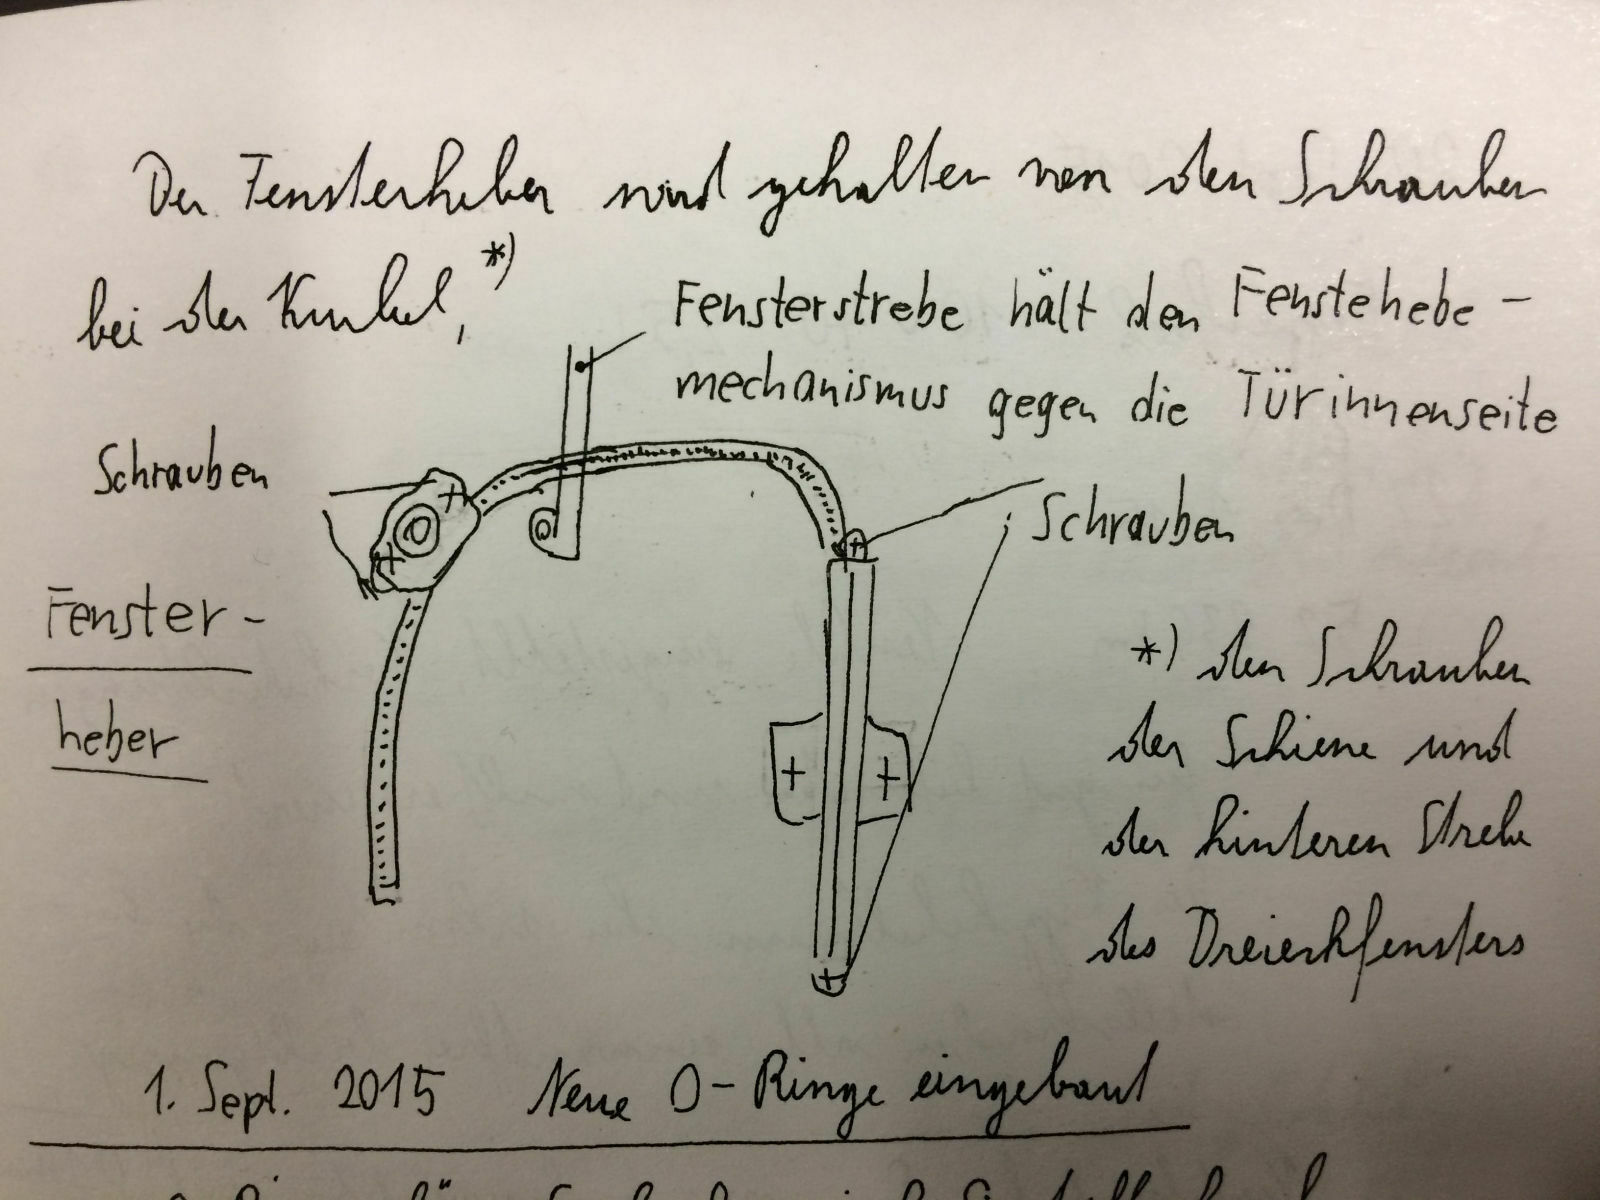 Der Fensterheber wird gehalten von den Schrauben
bei der Kurbel, *)
Fensterstrebe hält den Fenstehebe-
mechanismus gegen die Türinnenseite
Schrauben
Schrauben
Fenster-
heber
*) den Schrauben
der Schiene und
der hinteren Strebe
des Dreieckfensters
1. Sept. 2015 Neue O-Ringe eingebaut